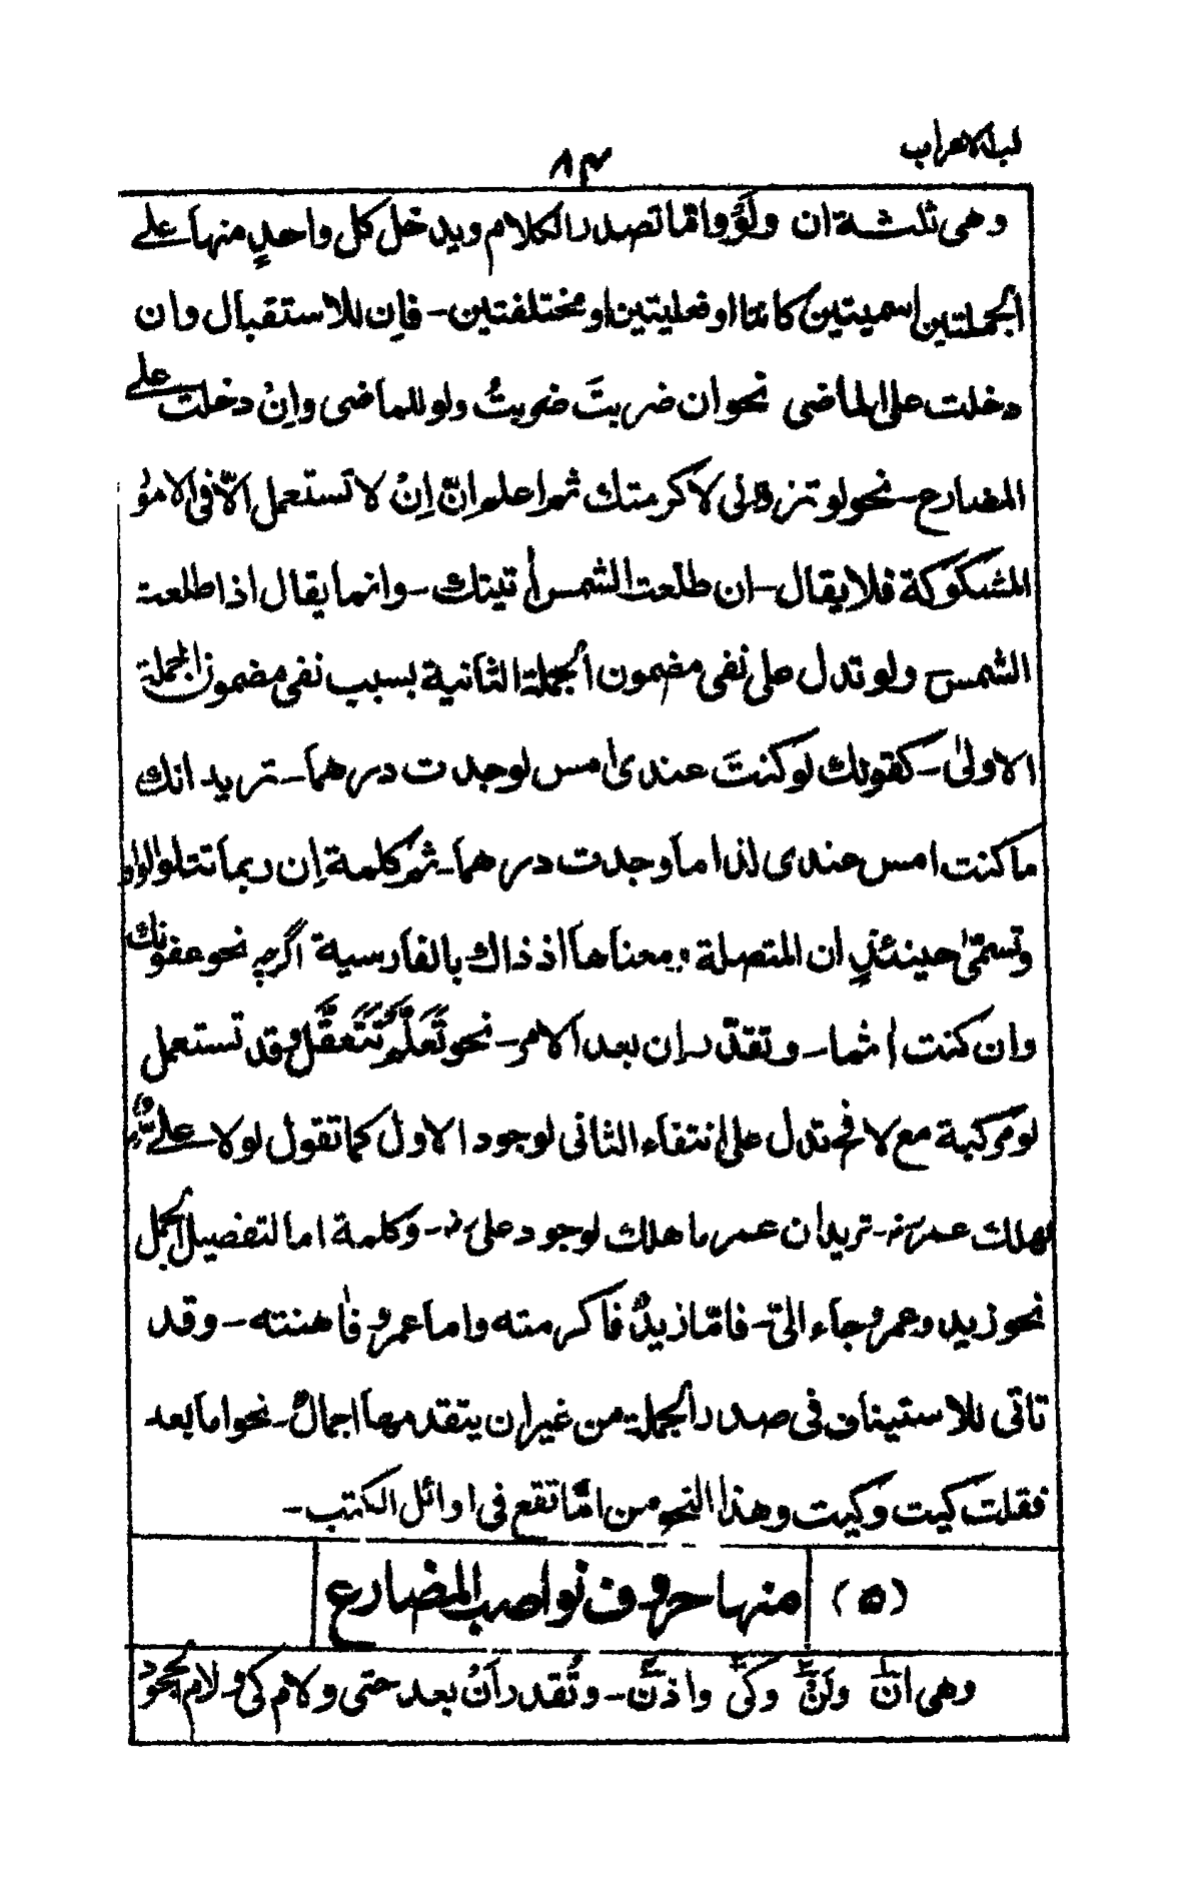 لب الاعراب
٨٤
وهى ثلثة ان ولو واما تصدر الكلام ويدخل كل واحدٍ منها على
الجملتين اسميتين كانتا او فعليتين او مختلفتين - فاِن للاستقبال وان
دخلت على الماضى نحو ان ضربتَ ضربتُ ولو للماضى واِنْ دخلت على
المضارع - نحو لو تزورنى لاكرمتك ثم اعلم انّ اِنْ لا تستعمل الّا فى الامور
المشكوكة فلا يقال - ان طلعت الشمس اٰتيتك - وانما يقال اذا طلعت
الشمس ولو تدل على نفى مضمون الجملة الثانية بسبب نفى مضمون الجملة
الاولىٰ - كقولك لو كنتَ عندى امس لوجدت درهما - تريد انك
ما كنت امس عندى لذا ما وجدت درهما - ثم كلمة اِن ربما تتلوا الواو
وتسمّىٰ حينئذٍ ان المتصلة ومعناها اذ ذاك بالفارسية اگرچه نحو عفوتك
وان كنت اٰثما - وتقدّر ان بعد الامر - نحو تَعَلَّمْ تَتَعَقَّلْ وقد تستعمل
لو مركبة مع لا فح تدل على انتفاء الثانى لوجود الاول كما تقول لولا علىٌّ
لهلك عمر - تريد ان عمر ما هلك لوجود على - وكلمة اما لتفصيل المجمل
نحو زيد وعمرو جاء الىّ - فامّا زيدٌ فاكرمته واما عمرو فاهنته - وقد
تاتى للاستيناف فى صدر الجملة من غير ان يتقدمها اجمالٌ - نحو اما بعد
فقلت كيت وكيت وهذا النحو من امّا تقع فى اوائل الكتب -
(٥) منها حروف نواصب المضارع
وهى انْ ولَنْ وكَىْ واذنْ - وتُقدر اَنْ بعد حتى ولام كى ولام الجحود